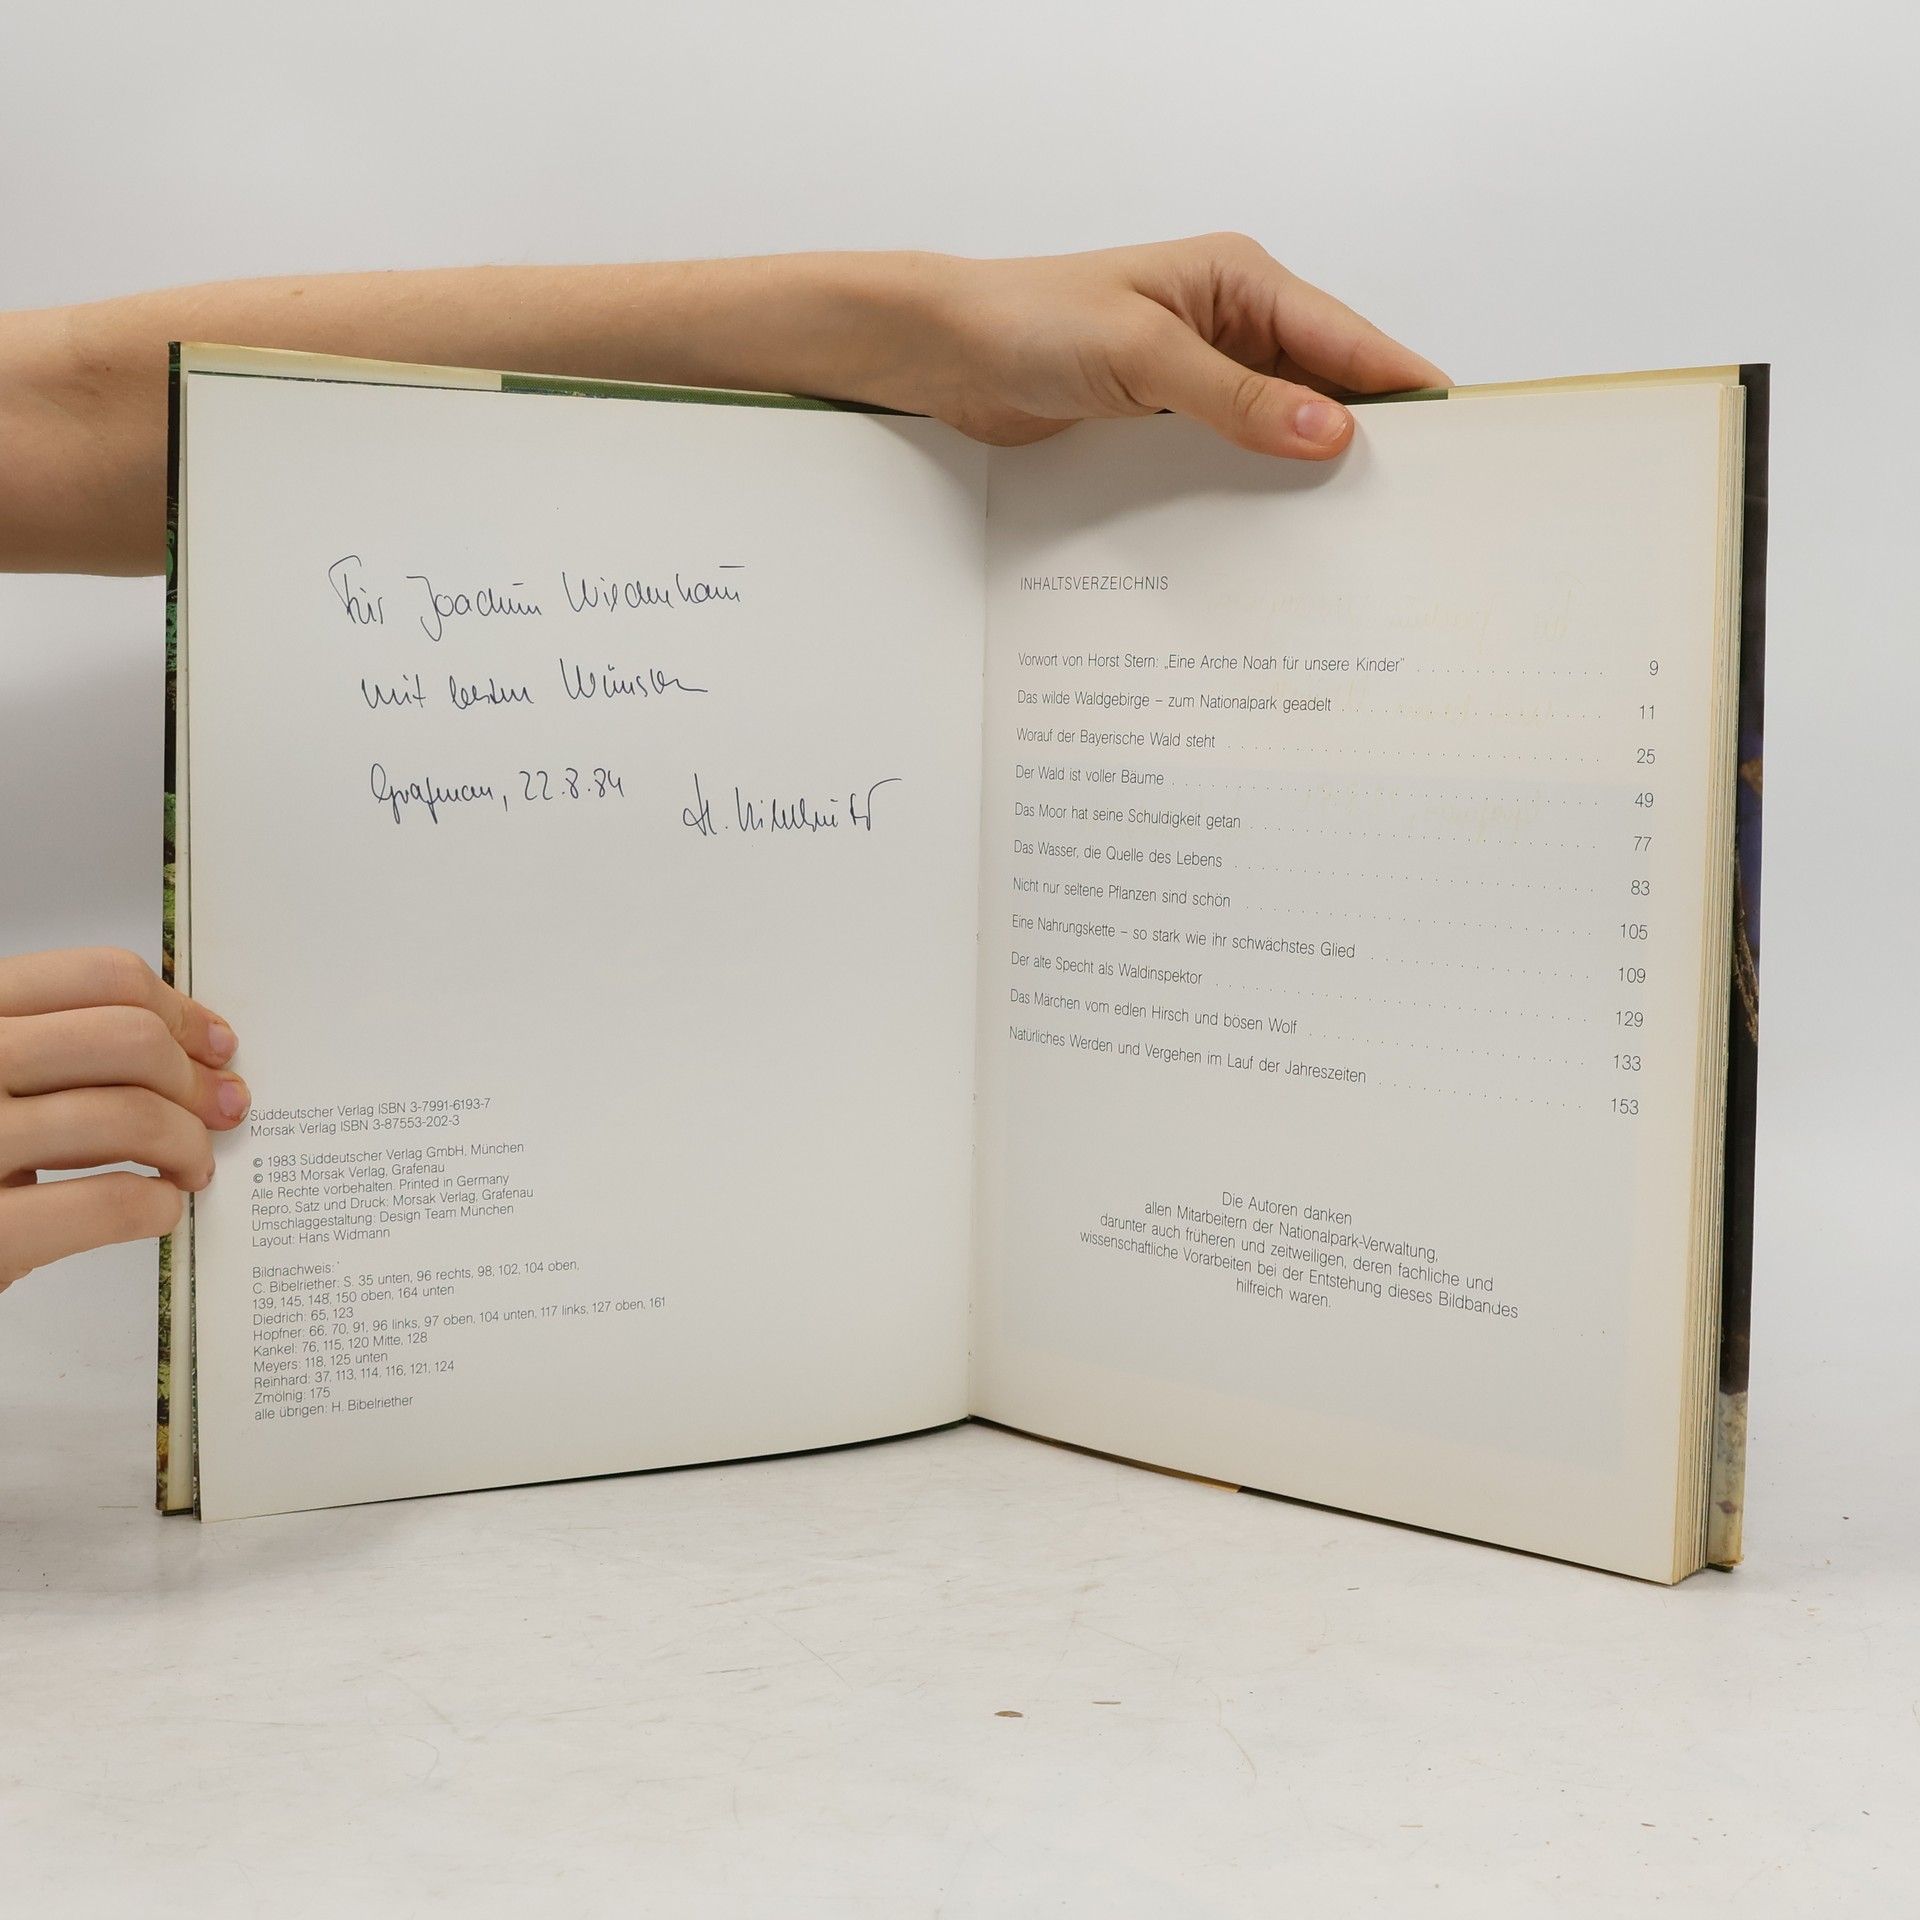 Für Joachim Wiedenhaus
mit besten Wünschen
Grafenau, 22.8.84
H. Bibelriether
Süddeutscher Verlag ISBN 3-7991-6193-7
Morsak Verlag ISBN 3-87553-202-3
© 1983 Süddeutscher Verlag GmbH, München
© 1983 Morsak Verlag, Grafenau
Alle Rechte vorbehalten. Printed in Germany
Repro, Satz und Druck: Morsak Verlag, Grafenau
Umschlaggestaltung: Design Team München
Layout: Hans Widmann
Bildnachweis:
C. Bibelriether: S. 35 unten, 96 rechts, 98, 102, 104 oben,
139, 145, 148, 150 oben, 164 unten
Diedrich: 65, 123
Hopfner: 66, 70, 91, 96 links, 97 oben, 104 unten, 117 links, 127 oben, 161
Kankel: 76, 115, 120 Mitte, 128
Meyers: 118, 125 unten
Reinhard: 37, 113, 114, 116, 121, 124
Zmölnig: 175
alle übrigen: H. Bibelriether
INHALTSVERZEICHNIS
Vorwort von Horst Stern: „Eine Arche Noah für unsere Kinder" 9
Das wilde Waldgebirge – zum Nationalpark geadelt 11
Worauf der Bayerische Wald steht 25
Der Wald ist voller Bäume 49
Das Moor hat seine Schuldigkeit getan 77
Das Wasser, die Quelle des Lebens 83
Nicht nur seltene Pflanzen sind schön 105
Eine Nahrungskette – so stark wie ihr schwächstes Glied 109
Der alte Specht als Waldinspektor 129
Das Märchen vom edlen Hirsch und bösen Wolf 133
Natürliches Werden und Vergehen im Lauf der Jahreszeiten 153
Die Autoren danken
allen Mitarbeitern der Nationalpark-Verwaltung,
darunter auch früheren und zeitweiligen, deren fachliche und
wissenschaftliche Vorarbeiten bei der Entstehung dieses Bildbandes
hilfreich waren.